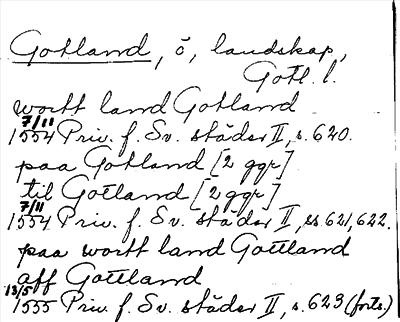 Gotland, ö, landskap,
Gotl. l.
wortt land Gotland
7/11
1554 Priv. f. Sv. städer II, s. 620.
paa Gotland [2 ggr]
til Gotland [2 ggr]
7/11
1554 Priv. f. Sv. städer II, ss 621, 622.
paa wortt land Gottland
aff Gotland
13/5
1555 Priv. f. Sv. städer II, s. 623 (forts.)